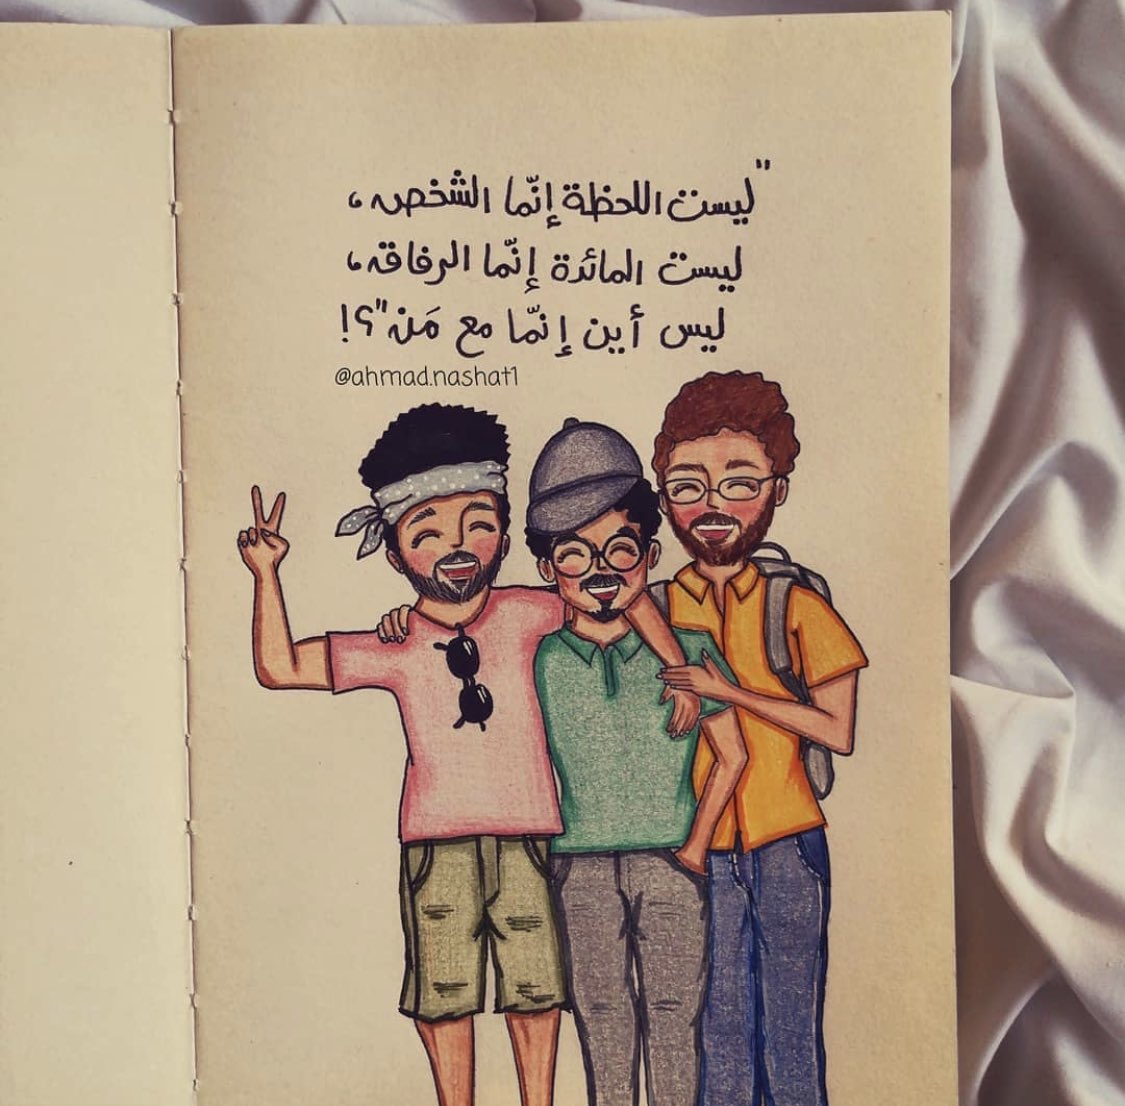 "ليست اللحظة إنّما الشخص،
ليست المائدة إنّما الرفاق،
ليس أين إنّما مع مَن"؟!
@ahmad.nashat1